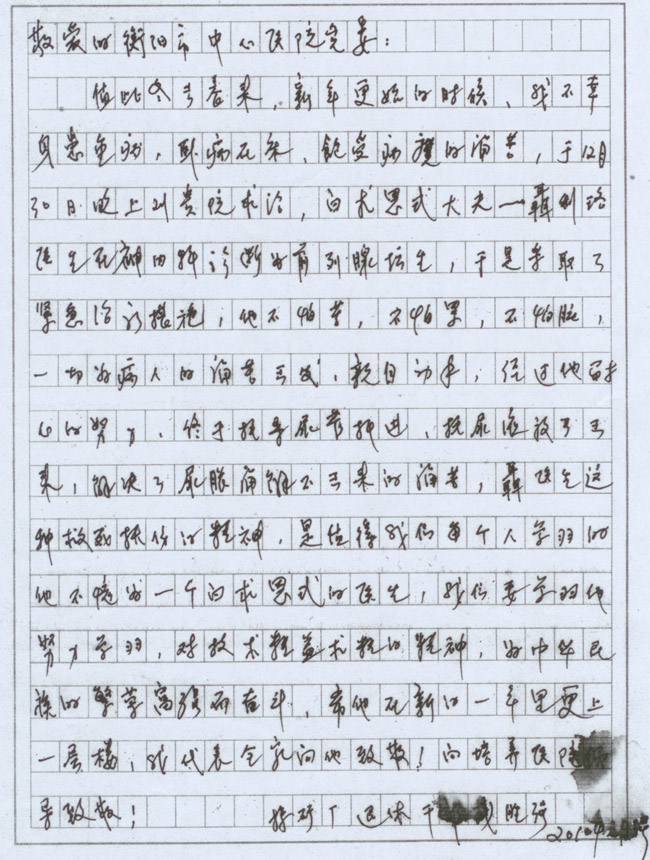 敬爱的衡阳市中心医院党委：
值此冬去春来，新年更始的时候，我不幸
身患重病，卧病在床，饱受病魔的痛苦，于12月
30日晚上到贵院求治，白求恩式大夫—聂利
医生在神内科诊断为前列腺，于是采取了
紧急治疗措施，他不怕苦，不怕累，不怕脏，
一切为病人的痛苦出发，亲自动手，经过他
心的努力，终于把导尿管插进，把尿液放了出
来，解决了尿胀痛解不出来的痛苦，聂医生这
种救死扶伤的精神，是值得我们每个人学习的
他不愧为一个白求恩式的医生，我们要学习他
努力学习，对技术精益求精的精神，为中华民
族的繁荣富强而奋斗，希他在新的一年里更上
一层楼，我代表全家向他致敬！向培养医院
导致敬！ 退休干 2010年